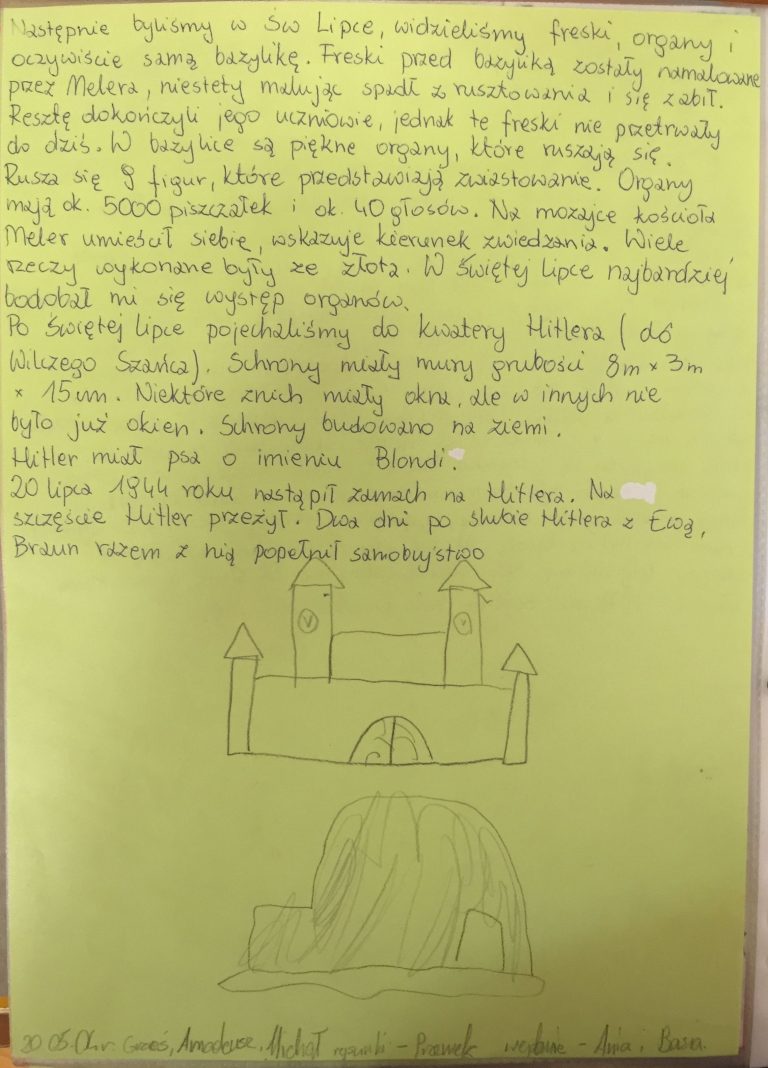 Następnie byliśmy w Św Lipce, widzieliśmy freski, organy i
oczywiście samą bazylikę. Freski przed bazyliką zostały namalowane
przez Melera, niestety malując spadł z rusztowania i się zabił.
Resztę dokończyli jego uczniowie, jednak te freski nie przetrwały
do dziś. W bazylice są piękne organy, które ruszają się.
Rusza się 9 figur, które przedstawiają zwiastowanie. Organy
mają ok. 5000 piszczałek i ok. 40 głosów. Na mozajce kościoła
Meler umieścił siebie, wskazuje kierunek zwiedzania. Wiele
rzeczy wykonane były ze złota. W Świętej Lipce najbardziej
bodobał mi się występ organów.
Po Świętej Lipce pojechaliśmy do kwatery Hitlera ( do
Wilczego Szańca). Schrony miały mury grubości 8m × 3m
× 15cm. Niektóre znich miały okna, ale w innych nie
było już okien. Schrony budowano na ziemi.
Hitler miał psa o imieniu Blondi.
20 lipca 1944 roku nastąpił zamach na Hitlera. Na
szczęście Hitler przeżył. Dwa dni po ślubie Hitlera z Ewą,
Braun razem z nią popełnił samobujstwo
Grześ, Amadeusz, Michał rysunki - Przemek - Ania i Basia.